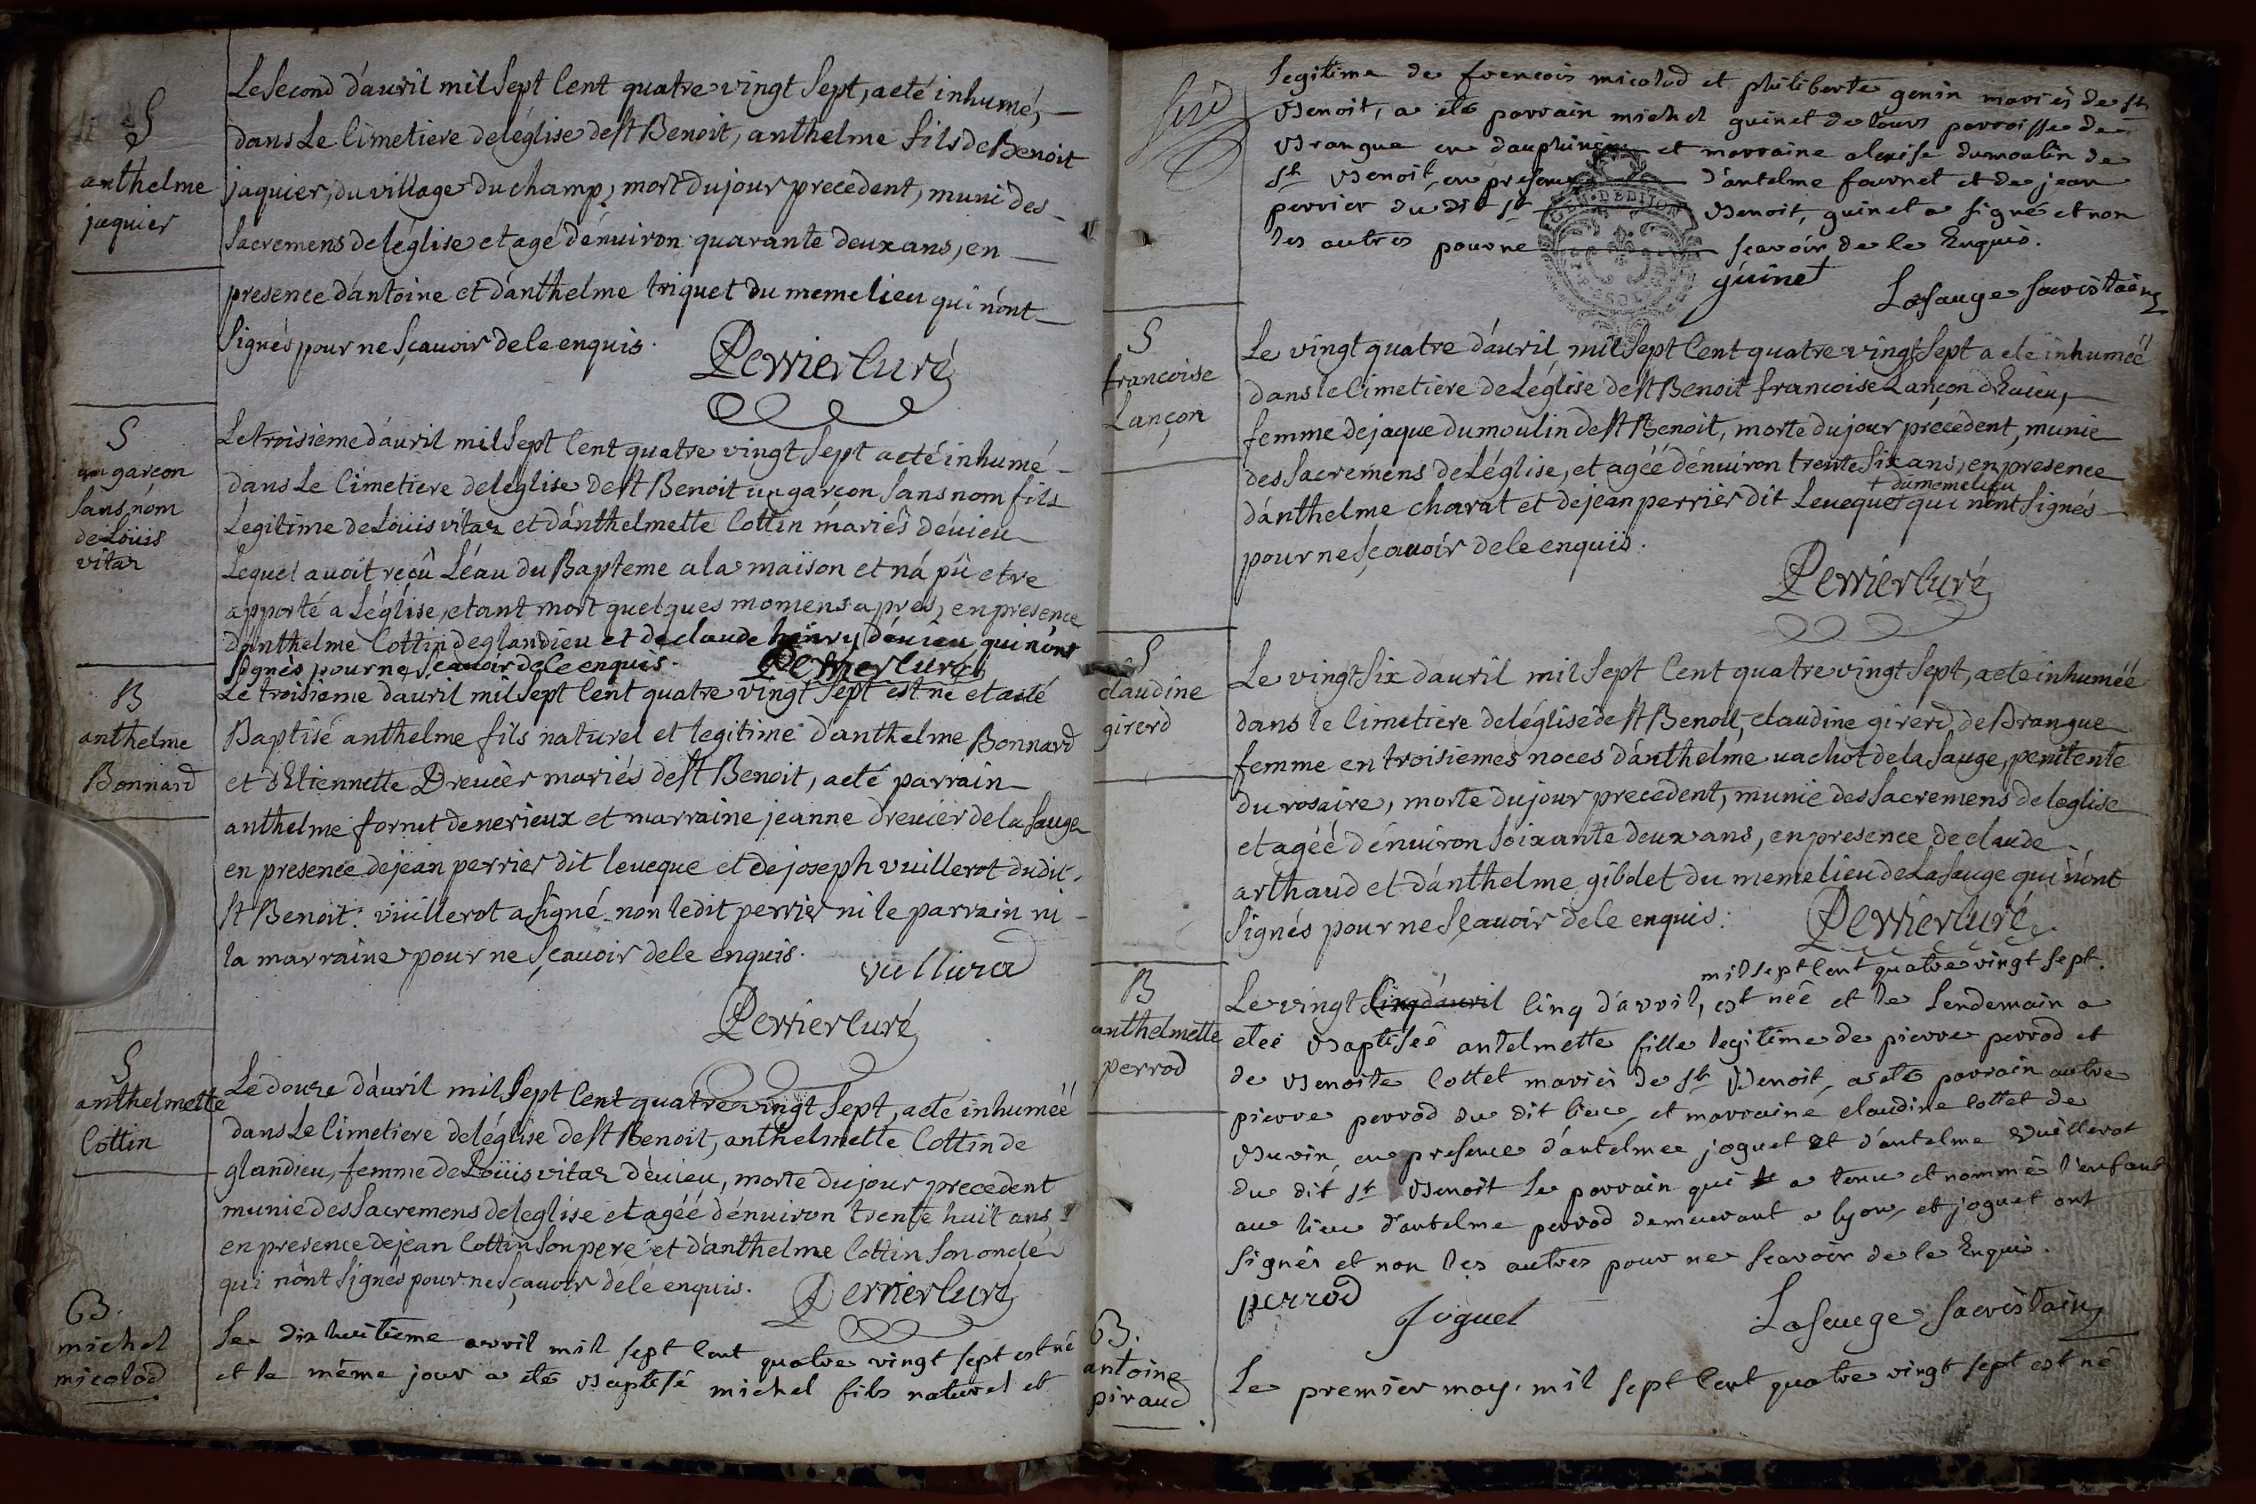 S
anthelme
jaquier
Le second d'auril mil sept Cent quatre vingt sept, a eté inhumé,
dans le Cimetiere de l'église de st Benoit, anthelme fils de Benoit
jaquier, du village du champ, mort du jour precedent, muni des
sacremens de l'église et agé d'enuiron quarante deux ans, en
presence d'antoine et d'anthelme triquet du meme lieu qui n'ont
signés pour ne sçauoir de le enquis.
Perrier Curé
S
un garcon
sans nom
de Loüis
vitaz
Le troisième d'auril mil sept Cent quatre vingt sept a eté inhumé
dans le Cimetiere de l'eglise de st Benoit un garçon sans nom fils
Legitime de Loüis vitaz et d'anthelmette Cottin mariés d'éuieu
Lequel auoit reçû L'éau du Bapteme a la maison et n'a pû etre
apporté a L'église, etant mort quelques momens apres, en presence
d'anthelme Cottin de glandieu et de claude henry d'éuieu, qui n'ont
signés pour ne sçauoir de le enquis.
Perrier Curé
B
anthelme
Bonnard
Le troisieme d'auril mil sept Cent quatre vingt sept est né et a eté
Baptisé anthelme fils naturel et legitime d'anthelme Bonnard
et d'Etiennette Dreuier mariés de st Benoit, a eté parrain
anthelme fornet de nerieux et marraine jeanne dreuier de la sauge
en presence de jean perrier dit leueque et de joseph vuillerot du dit
st Benoit. vüillerot a signé non ledit perrier ni le parrain ni
la marraine pour ne sçauoir de le enquis.
Perrier Curé
S
anthelmette
Cottin
Le douze d'auril mil sept Cent quatre vingt sept, a eté inhuméé
dans Le Cimetiere de l'église de st Benoit, anthelmette Cottin de
glandieu, femme de Loüis vitaz d'éuieu, morte du jour precedent
munie des sacremens de l'eglise et agéé d'énuiron trente huit ans
en presence de jean Cottin son pere et d'anthelme Cottin son oncle
qui n'ont signés pour ne sçauoir de le enquis.
Perrier Curé
B.
michel
micolod
Le dix huitieme avril mil sept Cent quatre vingt sept est né
et le même jour a eté Baptisé michel fils naturel et
legitime de francois micolod et philiberte genin mariés de st
Benoit, a eté parrain michel guinet de tours parroisse de
Brangue en dauphiné et marraine alexise dumoulin de
st Benoit, en presence d'antelme fournet et de jean
perrier du dit st Benoit, guinet a signé et non
les autres pour ne scavoir de le Enquis.
guinet
Lasauge sacristain
GEN. DE DIJON
S
francoise
Lançon
Le vingt quatre d'auril mil sept Cent quatre vingt sept a eté inhuméé
dans le Cimetiere de L'église de st Benoit francoise Lançon d'Euieu,
femme de jaque dumoulin de st Benoit, morte du jour precedent, munie
des sacremens de L'église, et agéé d'énuiron trente six ans, en presence
+ du meme lieu
d'anthelme charat et de jean perrier dit Leueque + qui n'ont signés
pour ne sçauoir de le enquis.
Perrier Curé
S
claudine
girerd
Le vingt six d'auril mil sept Cent quatre vingt sept, a eté inhuméé
dans le Cimetiere de l'église de st Benoit, claudine girerd de Brangue
femme en troisiemes noces d'anthelme uachot de la sauge, penitente
du rosaire, morte du jour precedent, munie des sacremens de l'eglise
et agéé d'énuiron soixante deux ans, en presence de claude
arthaud et d'anthelme gibolet du meme lieu de La sauge qui n'ont
signés pour ne sçauoir de le enquis.
Perrier Curé
B
anthelmette
perrod
mil sept Cent quatre vingt sept.
Le vingt Cinq d'auril Cinq d'avril, est néé et le lendemain a
etéé Baptiséé antelmette fille legitime de pierre perrod et
de Benoite Cottet mariés de st Benoit, a eté parrain autre
pierre perrod du dit lieu, et marraine claudine Cottet de
Buvin, en presence d'antelme joguet et d'antelme Vuillerot
du dit st Benoit le parrain qui a tenu et nommé l'enfant
au lieu d'antelme perrod demeurant a lyon, et joguet ont
signés et non les autres pour ne scavoir de le Enquis.
perrod
Joguet
Lasauge sacristain
B.
antoine
piraud
Le premier may mil sept Cent quatre vingt sept est né